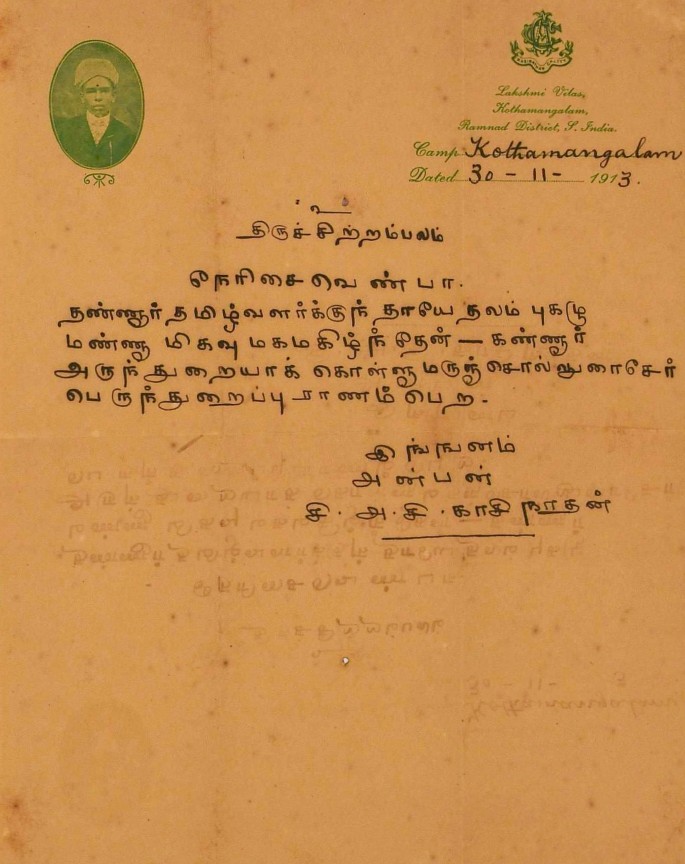 Lakshmi Vilas,
Kothamangalam,
Ramnad District, S. India.
Camp Kothamangalam
Dated 30-11-1913.
உ
திருச்சிற்றம்பலம்
நேரிசைவெண்பா.
தண்ணூர் தமிழ்வளர்க்குந் தாயே தலம் புகழு
மண்ணூ மிகவு மகமகிழ்ந்தேன் — கண்ணூர்
அருந்துறையாக் கொள்ளு மருஞ்சொல்லுரைசேர்
பெருந்துறைப்புராணம் பெற.
இங்ஙனம்
அன்பன்
சி. அ. சி. காசிநாதன்